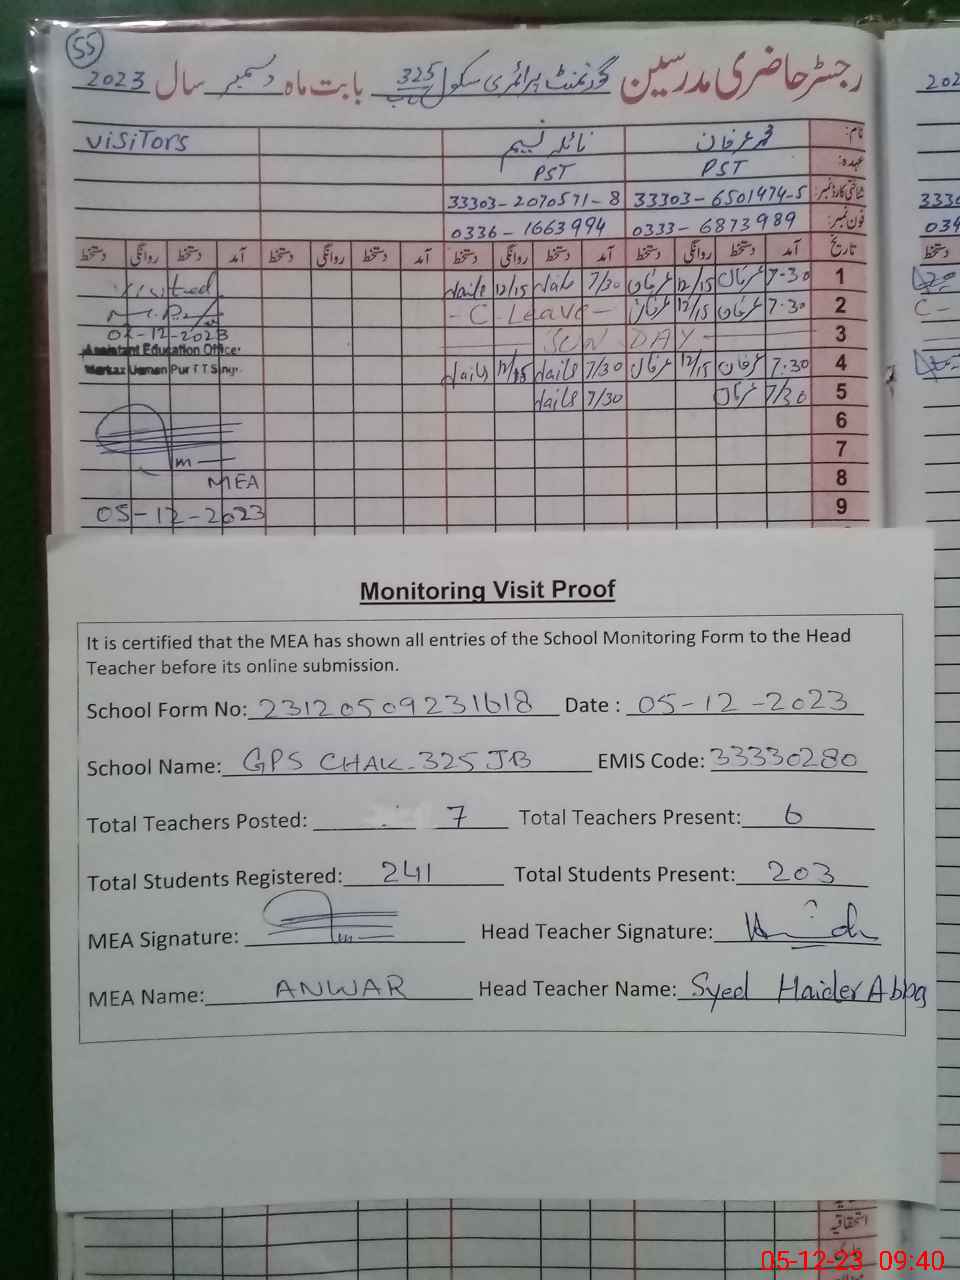 55
رجسٹر حاضری مدرسین گورنمنٹ پرائمری سکول 325 ج ب بابت ماہ دسمبر سال 2023
نام: محمد عرفان نائلہ نسیم VISITORS
عہدہ: PST PST
شناختی کارڈ نمبر: 33303-6501474-5 33303-2070571-8
فون نمبر: 0333-6873989 0336-1663994
تاریخ آمد دستخط روانگی دستخط آمد دستخط روانگی دستخط آمد دستخط روانگی دستخط آمد دستخط روانگی دستخط
1 7-30 عرفان 12/15 عرفان 7/30 naila 12/15 naila Visited
2 7-30 عرفان 12/15 عرفان - C - Leave -
02-12-2023
3 SUN DAY
Assistant Education Officer
4 7-30 عرفان 12/15 عرفان 7/30 naila 12/15 naila
Markaz Usman Pur T.T Singh
5 7/30 عرفان 7/30 naila
6
7
8 MEA
9 05-12-2023
Monitoring Visit Proof
It is certified that the MEA has shown all entries of the School Monitoring Form to the Head
Teacher before its online submission.
School Form No: 23120509231618 Date : 05-12-2023
School Name: GPS CHAK-325 JB EMIS Code: 33330280
Total Teachers Posted: 7 Total Teachers Present: 6
Total Students Registered: 241 Total Students Present: 203
MEA Signature: Head Teacher Signature:
MEA Name: ANWAR Head Teacher Name: Syed Haider Abbas
استحقاقیہ
05-12-23 09:40